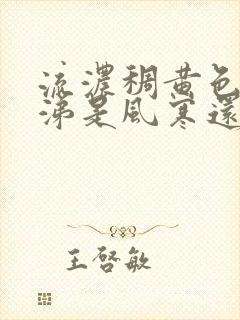 流濃稠黃色
涕是風寒還
王啓敏